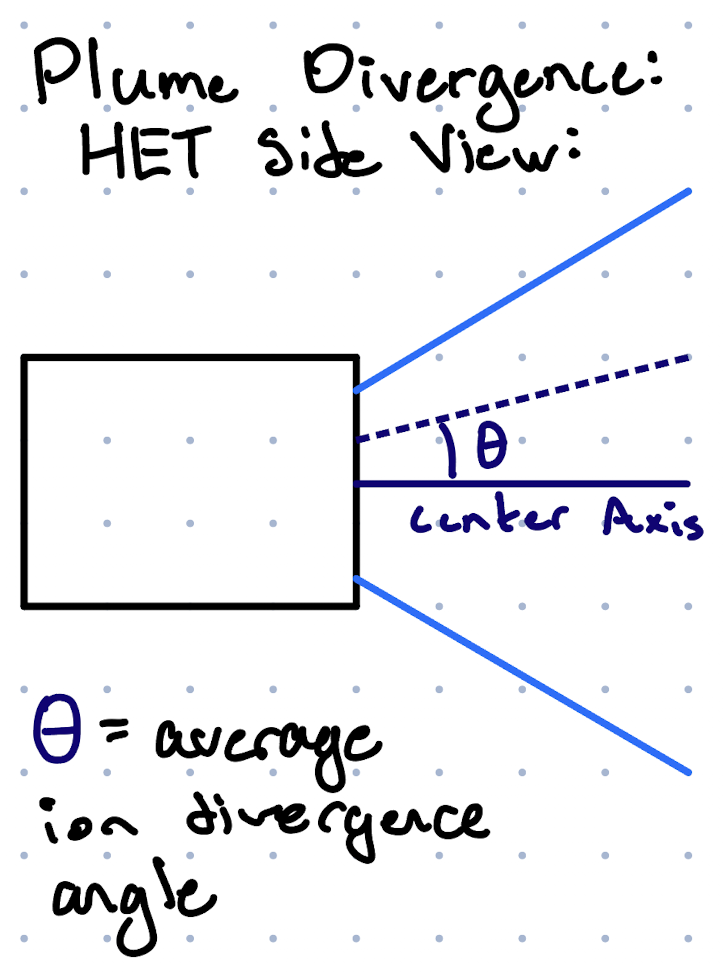 Plume Divergence:
HET Side View:
θ
center Axis
θ = average
ion divergence
angle